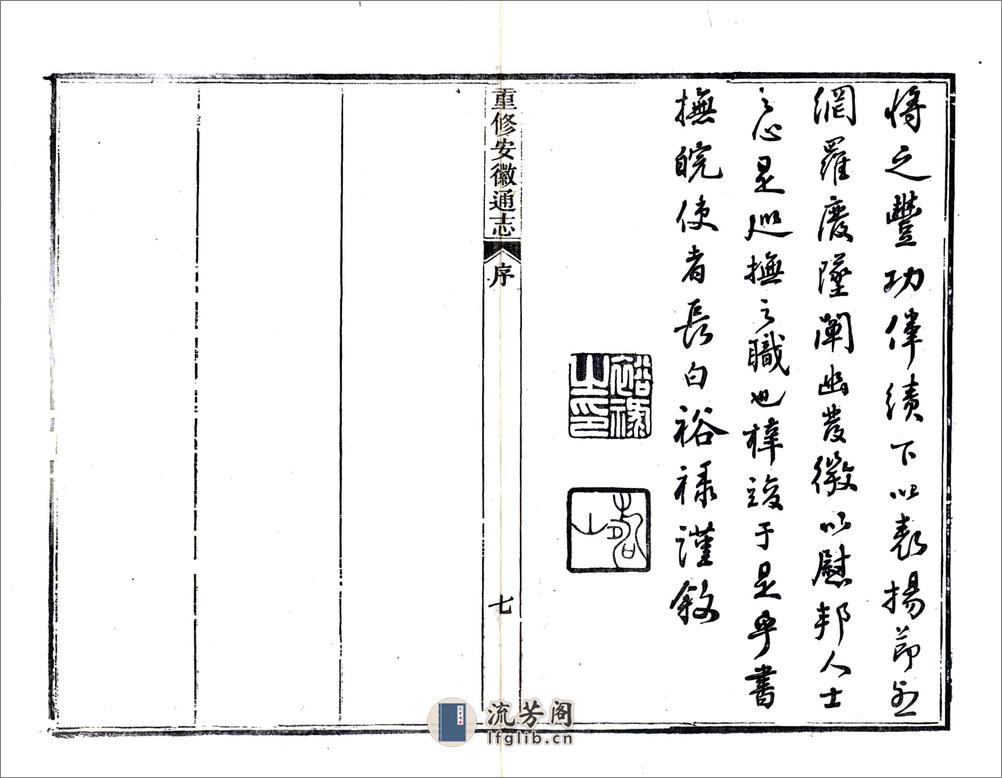 將之豐功偉績下以表揚節烈
網羅廢墜闡幽發微以慰邦人士
之心是巡撫之職也梓竣于是乎書
撫皖使者長白裕祿謹敘
裕祿
之印
重修安徽通志
序
七
流芳阁
lfglib.cn